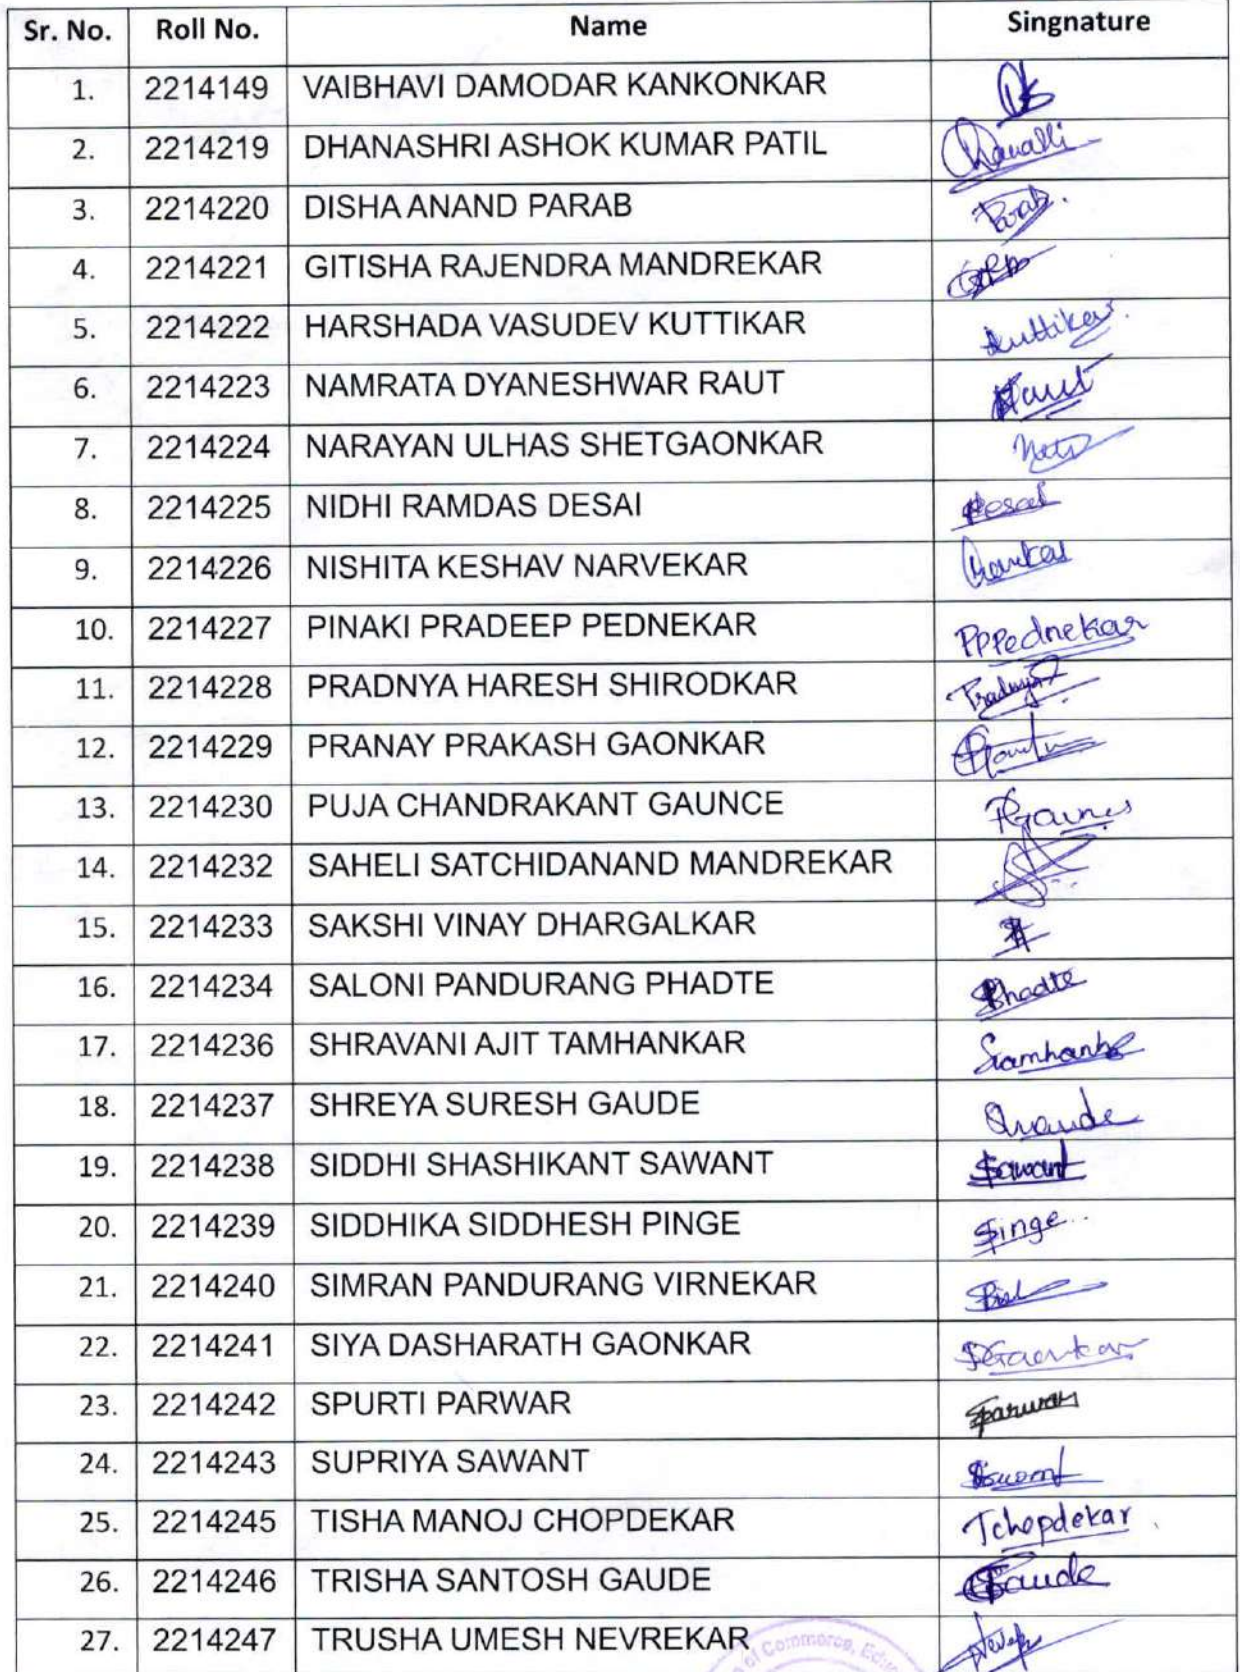 Sr. No. Roll No. Name Singnature
1. 2214149 VAIBHAVI DAMODAR KANKONKAR
2. 2214219 DHANASHRI ASHOK KUMAR PATIL
3. 2214220 DISHA ANAND PARAB Parab.
4. 2214221 GITISHA RAJENDRA MANDREKAR
5. 2214222 HARSHADA VASUDEV KUTTIKAR Kuttikar.
6. 2214223 NAMRATA DYANESHWAR RAUT Raut
7. 2214224 NARAYAN ULHAS SHETGAONKAR
8. 2214225 NIDHI RAMDAS DESAI Desai
9. 2214226 NISHITA KESHAV NARVEKAR
10. 2214227 PINAKI PRADEEP PEDNEKAR PPPednekar
11. 2214228 PRADNYA HARESH SHIRODKAR Pradnya
12. 2214229 PRANAY PRAKASH GAONKAR
13. 2214230 PUJA CHANDRAKANT GAUNCE
14. 2214232 SAHELI SATCHIDANAND MANDREKAR
15. 2214233 SAKSHI VINAY DHARGALKAR
16. 2214234 SALONI PANDURANG PHADTE Phadte
17. 2214236 SHRAVANI AJIT TAMHANKAR
18. 2214237 SHREYA SURESH GAUDE
19. 2214238 SIDDHI SHASHIKANT SAWANT Sawant
20. 2214239 SIDDHIKA SIDDHESH PINGE Pinge
21. 2214240 SIMRAN PANDURANG VIRNEKAR
22. 2214241 SIYA DASHARATH GAONKAR SGaonkar
23. 2214242 SPURTI PARWAR Sparwar
24. 2214243 SUPRIYA SAWANT
25. 2214245 TISHA MANOJ CHOPDEKAR Tchopdekar
26. 2214246 TRISHA SANTOSH GAUDE Gaude
27. 2214247 TRUSHA UMESH NEVREKAR
of Commerce,